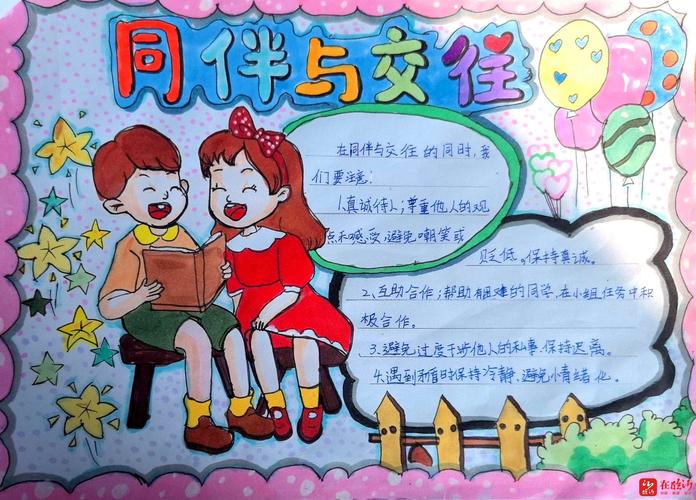 同伴与交往
在同伴与交往的同时,我
们要注意:
1.真诚待人;尊重他人的观
点和感受,避免嘲笑或
贬低。保持真诚。
2、互助合作;帮助有困难的同学,在小组任务中积
极合作。
3.避免过度干涉他人的私事.保持迟离。
4.遇到矛盾时保持冷静,避免情绪化。
在临沂